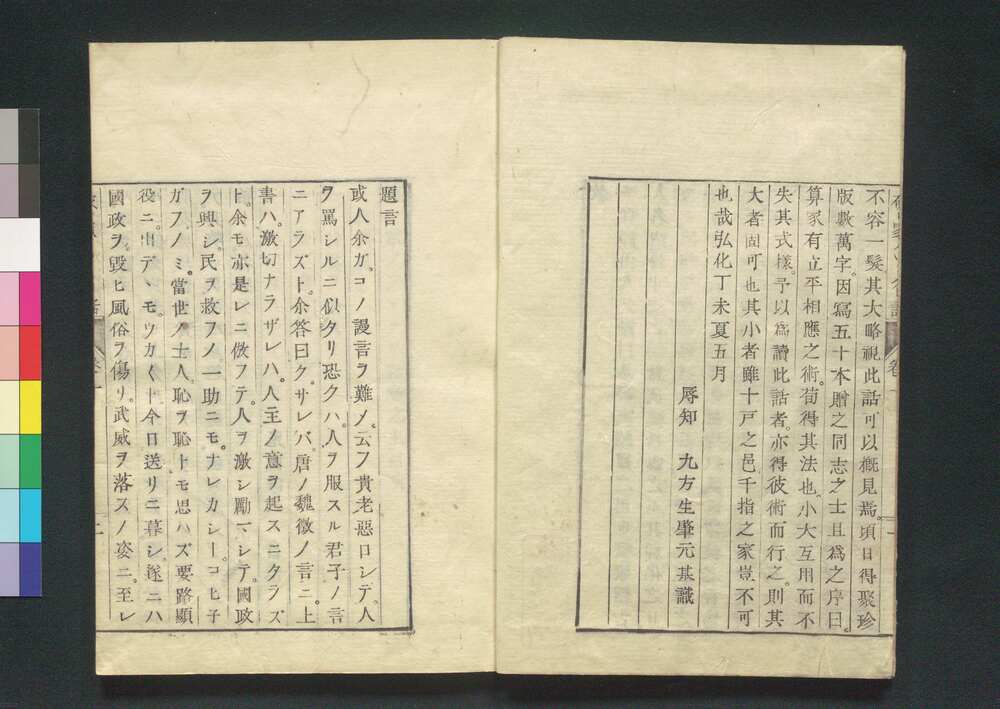 不容一髮其大略視此話可以概見焉頃日得聚珍
版數萬字因寫五十本贈之同志之士且爲之序曰
算家有立平相應之術荀得其法也小大互用而不
失其式樣予以爲讀此話者亦得彼術而行之則其
大者固可也其小者雖十戸之邑千指之家豈不可
也哉弘化丁未夏五月
辱知 九方生肇元基識
題言
或人余ガコノ謾言ヲ難メ云フ貴老惡口シデ人
ヲ罵シルニ似タリ恐クハ人ヲ服スル君子ノ言
ニアラズト余答曰クサレバ唐ノ魏徵ノ言ニ上
書ハ激切ナラザレハ人主ノ意ヲ起スニタラズ
ト余モ亦是レニ倣フテ人ヲ激シ勵マシテ國政
ヲ興シ民ヲ救フノ一助ニモナレカシーコヒ子
ガフノミ當世ノ士人恥ヲ恥トモ思ハズ要路顯
役ニ出デヽモツカ〱ト今日送リニ暮シ遂ニハ
國政ヲ毀ヒ風俗ヲ傷リ武威ヲ落スノ姿ニ至レ